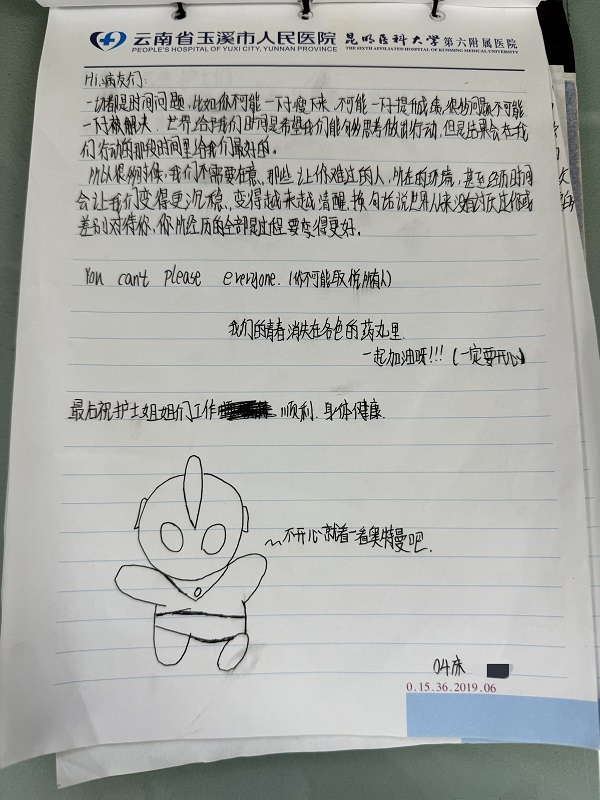 云南省玉溪市人民医院 昆明医科大学第六附属医院
PEOPLE'S HOSPITAL OF YUXI CITY, YUNNAN PROVINCE THE SIXTH AFFILIATED HOSPITAL OF KUNMING MEDICAL UNIVERSITY
Hi,病友们:
一切都是时间问题,比如你不可能一下子瘦下来,不可能一下子提升成绩,很多问题不可能
一下子被解决,世界给予我们时间是希望我们能有所思考做出行动,但是结果会在我
们行动的那段时间里给我们最好的。
所以很多时候,我们不需要在意,那些让你难过的人,所在的环境,甚至经历时间
会让我们变得更沉稳,变得越来越清醒,换句话说世界从来没有讨厌过你或
差别对待你,你所经历的全部是过程要变得更好。
You can't please everyone.(你不可能取悦所有人)
我们的青春消失在各色的药丸里.
一起加油呀!!!(一定要开心)
最后祝护士姐姐们工作 顺利.身体健康.
~不开心就看一看奥特曼吧.
04床
0.15.36.2019.06